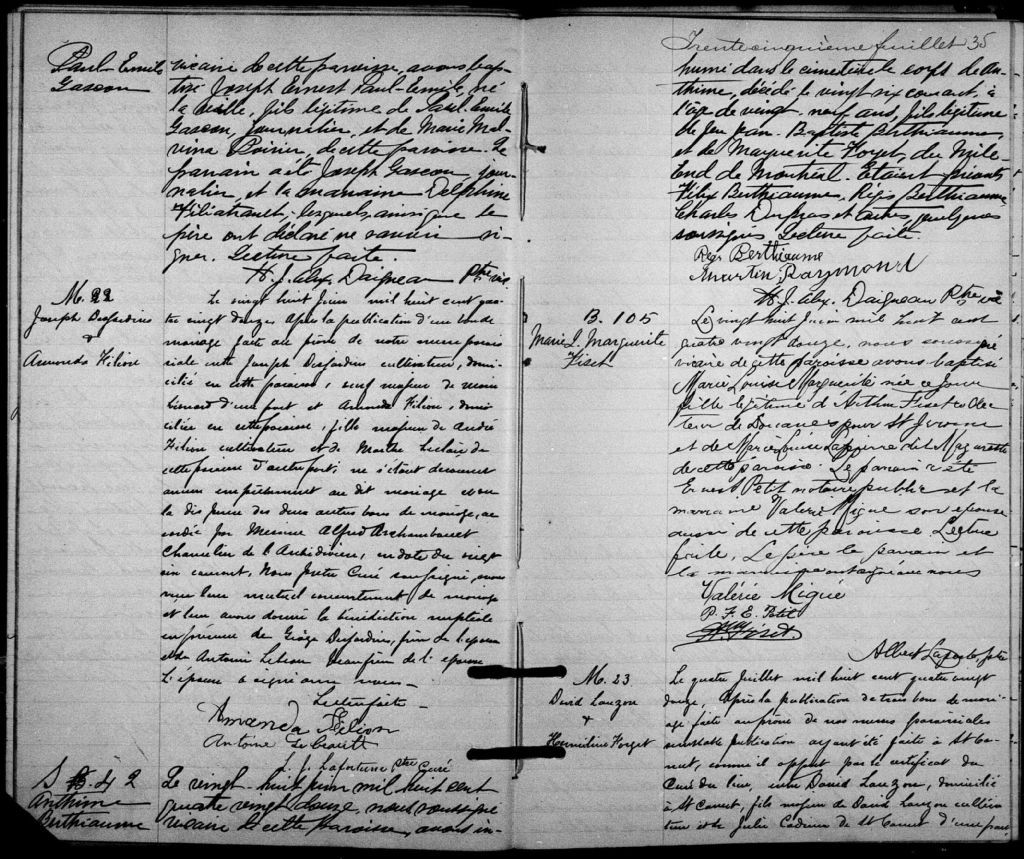 Paul-Emile
Gascon
vicaire de cette paroisse, avons bap-
tisé Joseph Ernest Paul-Emile, né
la veille, fils légitime de Paul-Emile
Gascon, journalier, et de Marie Mal-
vina Poirier, de cette paroisse. Le
parrain a été Joseph Gascon, jour-
nalier, et la marraine Delphine
Filiatrault, lesquels, ainsi que le
père ont déclaré ne savoir si-
gner. Lecture faite.
H. J. Alex. Daigneau Ptre vic.
M. 22
Joseph Desjardins
&
Amanda Filion
Le vingt huit Juin mil huit cent qua-
tre vingt douze Après la publication d'un ban de
mariage faite au prône de notre messe parois-
siale entre Joseph Desjardins cultivateur, domi-
cilié en cette paroisse, veuf majeur de
d'une part et Amanda Filion, domi-
ciliée en cette paroisse, fille majeure de André
Filion cultivateur et de Marthe Leclair de
cette paroisse d'autre part; ne s'étant découvert
aucun empêchement au dit mariage et vu
la dispense des deux autres bans de mariage, ac-
cordée par Messire Alfred Archambault
Chancelier de l'Archidiocèse, en date du vingt
six courant, Nous Prêtre Curé soussigné, avons
reçu leur mutuel consentement de mariage
et leur avons donné la bénédiction nuptiale
en présence de George Desjardins, frère de l'époux
et de Antoine beaufrère de l'épouse
L'épouse a signé avec nous -
Lecture faite -
Amanda Filion
Antoine
L. J. Lafortune Ptre Curé
S. 42
Anthime
Berthiaume
Le vingt-huit juin mil huit cent
quatre vingt douze, nous soussigné
vicaire de cette paroisse, avons in-
Trente cinquième feuillet 35
humé dans le cimetière le corps de An-
thime, décédé le vingt six courant, à
l'âge de vingt-neuf ans, fils légitime
de feu Jean-Baptiste Berthiaume,
et de Marguerite Forget, du Mile-
End de Montréal. Etaient présents
Félix Berthiaume, Régis Berthiaume
Charles Dupras et autres, quelques
soussignés Lecture faite.
Régis Berthiaume
Martin Raymond
H. J. Alex. Daigneau Ptre vic
B. 105
Marie L. Marguerite
Fiset
Le vingt huit Juin mil huit cent
quatre vingt douze, nous soussigné
vicaire de cette paroisse avons baptisé
Marie Louise Marguerite née ce jour
fille légitime d'Arthur Fiset collec
teur de Douanes pour St Jerome
et de Marie Louise Lappierre dit
de cette paroisse. Le parrain a été
Ernest Petit notaire public et la
marraine Valérie Migué son épouse
aussi de cette paroisse Lecture
faite. Le père le parrain et
la marraine ont signé avec nous
Valérie Migué
P. F. E. Petit
Fiset
Albert Laporte, ptre
M. 23
David Lauzon
+
Herméline Forget
Le quatre Juillet mil huit cent quatre vingt
douze, Après la publication de trois bans de mari-
age faite au prône de nos messes paroissiales
semblable publication ayant été faite à St Ca-
nut, comme il appert par le certificat du
Curé du lieu, entre David Lauzon, domicilié
à St Canut, fils majeur de David Lauzon cultiva-
teur et de Julie Cadieux de St Canut d'une part,